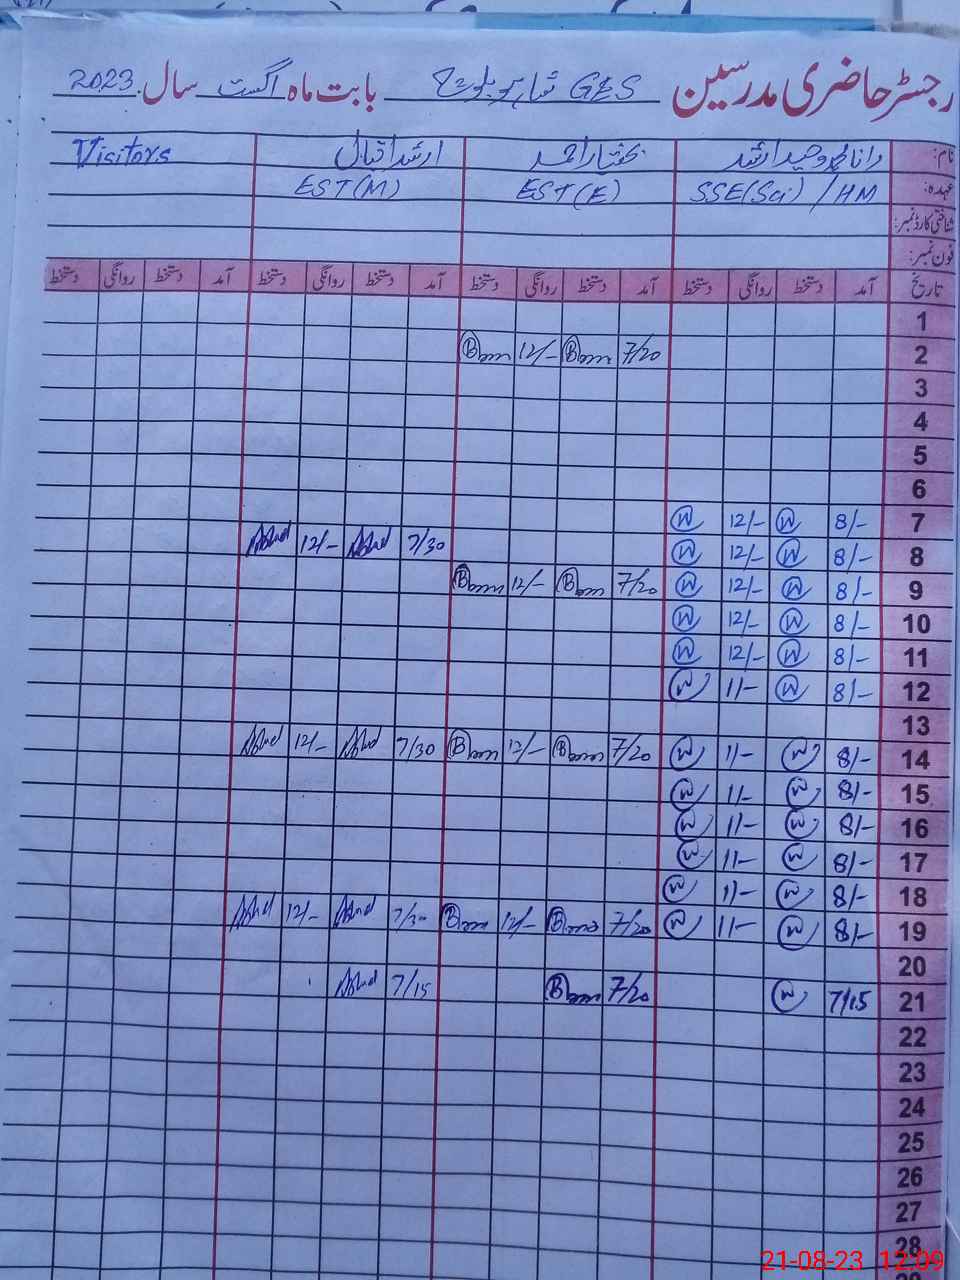 رجسٹر حاضری مدرسین GES شاہپور بلوچ بابت ماہ اگست سال 2023
نام: رانا محمد وحید ارشد بختیار احمد ارشد اقبال Visitors
عہدہ: SSE(Sci) / HM EST(E) EST(M)
شناختی کارڈ نمبر:
فون نمبر:
تاریخ آمد دستخط روانگی دستخط آمد دستخط روانگی دستخط آمد دستخط روانگی دستخط آمد دستخط روانگی دستخط
1
2 7/20 12/-
3
4
5
6
7 8/- W 12/- W
8 8/- W 12/- W 7/30 12/-
9 8/- W 12/- W 7/20 12/-
10 8/- W 12/- W
11 8/- W 12/- W
12 8/- W 11/- W
13
14 8/- W 11/- W 7/20 12/- 7/30 12/-
15 8/- W 11/- W
16 8/- W 11/- W
17 8/- W 11/- W
18 8/- W 11/- W
19 8/- W 11/- W 7/20 12/- 7/30 12/-
20
21 7/15 W 7/20 7/15
22
23
24
25
26
27
28
21-08-23 12:09